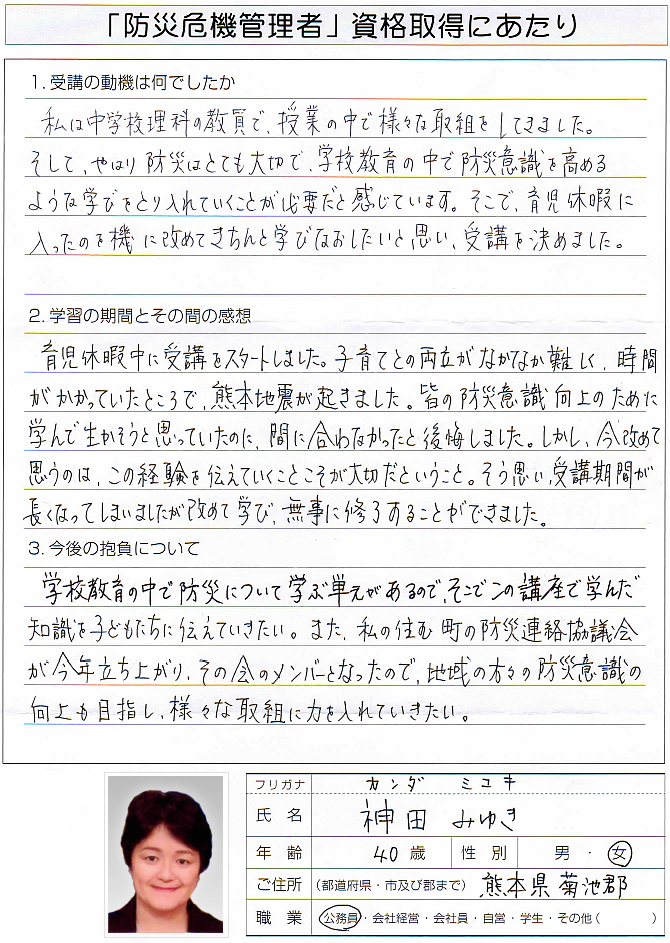 「防災危機管理者」資格取得にあたり
1. 受講の動機は何でしたか
私は中学校理科の教員で、授業の中で様々な取組をしてきました。
そして、やはり防災はとても大切で、学校教育の中で防災意識を高める
ような学びをとり入れていくことが必要だと感じています。そこで、育児休暇に
入ったのを機に改めてきちんと学びなおしたいと思い、受講を決めました。
2. 学習の期間とその間の感想
育児休暇中に受講をスタートしました。子育てとの両立がなかなか難しく、時間
がかかっていたところで、熊本地震が起きました。皆の防災意識向上のために
学んで生かそうと思っていたのに、間に合わなかったと後悔しました。しかし、今改めて
思うのは、この経験を伝えていくことこそが大切だということ。そう思い、受講期間が
長くなってしまいましたが改めて学び、無事に修了することができました。
3. 今後の抱負について
学校教育の中で防災について学ぶ単元があるので、そこでこの講座で学んだ
知識を子どもたちに伝えていきたい。また、私の住む町の防災連絡協議会
が今年立ち上がり、その会のメンバーとなったので、地域の方々の防災意識の
向上も目指し、様々な取組に力を入れていきたい。
フリガナ カンダ ミユキ
氏名 神田 みゆき
年齢 40歳 性別 男・女
ご住所 (都道府県・市及び郡まで) 熊本県菊池郡
職業 公務員・会社経営・会社員・自営・学生・その他( )